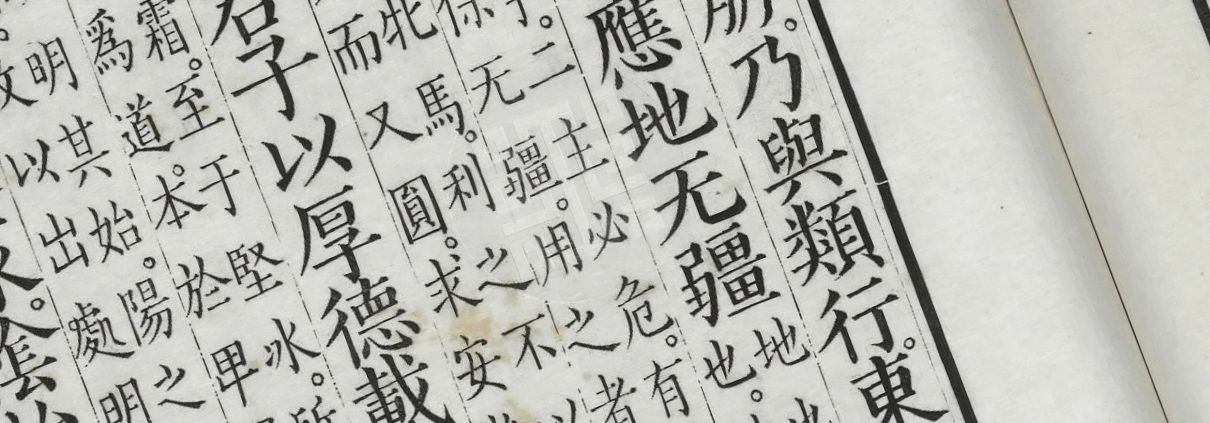 朋。乃與類行。東
應地无疆
地也
也。
二主必危。有
保无疆。用之者
牝馬。利之不以
而又圓。求安
君子以厚德載
霜。至于堅冰。所
爲道。本於卑
明其始。陽之
故以出處明